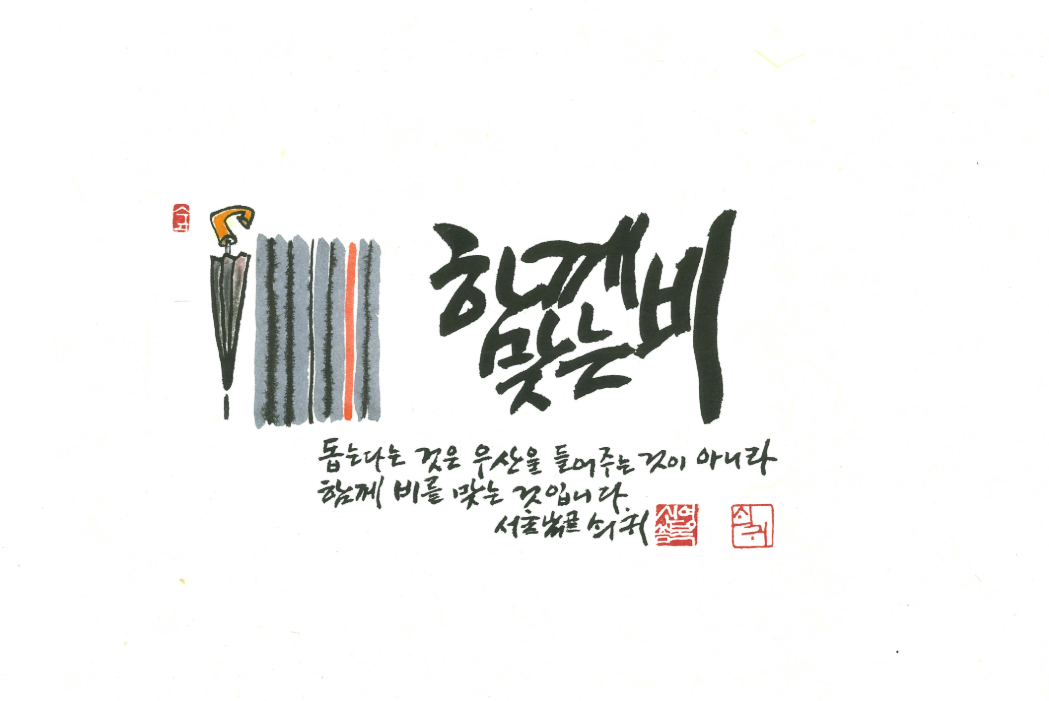 함께
맞는
비
돕는다는 것은 우산을 들어주는 것이 아니라
함께 비를 맞는 것입니다
쇠귀
쇠귀